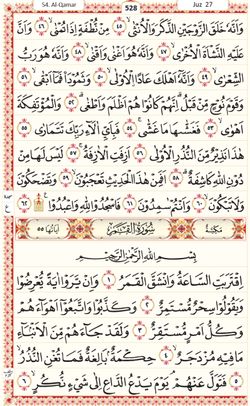 54. Al-Qamar 528 Juz 27
وَاَنَّهٗ خَلَقَ الزَّوْجَيْنِ الذَّكَرَ وَالْاُنْثٰى ۙ ٤٥ مِنْ نُّطْفَةٍ اِذَا تُمْنٰى ۖ ٤٦ وَاَنَّ
عَلَيْهِ النَّشْاَةَ الْاُخْرٰى ۙ ٤٧ وَاَنَّهٗ هُوَ اَغْنٰى وَاَقْنٰى ۙ ٤٨ وَاَنَّهٗ هُوَ رَبُّ
الشِّعْرٰى ۙ ٤٩ وَاَنَّهٗٓ اَهْلَكَ عَادًا الْاُوْلٰى ۙ ٥٠ وَثَمُوْدَا۟ فَمَآ اَبْقٰى ۙ ٥١
وَقَوْمَ نُوْحٍ مِّنْ قَبْلُ ۗ اِنَّهُمْ كَانُوْا هُمْ اَظْلَمَ وَاَطْغٰى ۗ ٥٢ وَالْمُؤْتَفِكَةَ
اَهْوٰى ۙ ٥٣ فَغَشّٰىهَا مَا غَشّٰى ۚ ٥٤ فَبِاَيِّ اٰلَاۤءِ رَبِّكَ تَتَمَارٰى ٥٥
هٰذَا نَذِيْرٌ مِّنَ النُّذُرِ الْاُوْلٰى ٥٦ اَزِفَتِ الْاٰزِفَةُ ۚ ٥٧ لَيْسَ لَهَا مِنْ
دُوْنِ اللّٰهِ كَاشِفَةٌ ۗ ٥٨ اَفَمِنْ هٰذَا الْحَدِيْثِ تَعْجَبُوْنَ ۙ ٥٩ وَتَضْحَكُوْنَ
وَلَا تَبْكُوْنَ ۙ ٦٠ وَاَنْتُمْ سٰمِدُوْنَ ٦١ فَاسْجُدُوْا لِلّٰهِ وَاعْبُدُوْا ۩ ٦٢
مَكِّيَّةٌ سُوْرَةُ الْقَمَرِ اٰيَاتُهَا ٥٥
بِسْمِ اللّٰهِ الرَّحْمٰنِ الرَّحِيْمِ
اِقْتَرَبَتِ السَّاعَةُ وَانْشَقَّ الْقَمَرُ ١ وَاِنْ يَّرَوْا اٰيَةً يُّعْرِضُوْا
وَيَقُوْلُوْا سِحْرٌ مُّسْتَمِرٌّ ٢ وَكَذَّبُوْا وَاتَّبَعُوْٓا اَهْوَاۤءَهُمْ
وَكُلُّ اَمْرٍ مُّسْتَقِرٌّ ٣ وَلَقَدْ جَاۤءَهُمْ مِّنَ الْاَنْۢبَاۤءِ
مَا فِيْهِ مُزْدَجَرٌ ۙ ٤ حِكْمَةٌ ۢ بَالِغَةٌ فَمَا تُغْنِ النُّذُرُ ۙ
٥ فَتَوَلَّ عَنْهُمْ ۘ يَوْمَ يَدْعُ الدَّاعِ اِلٰى شَيْءٍ نُّكُرٍ ۙ ٦